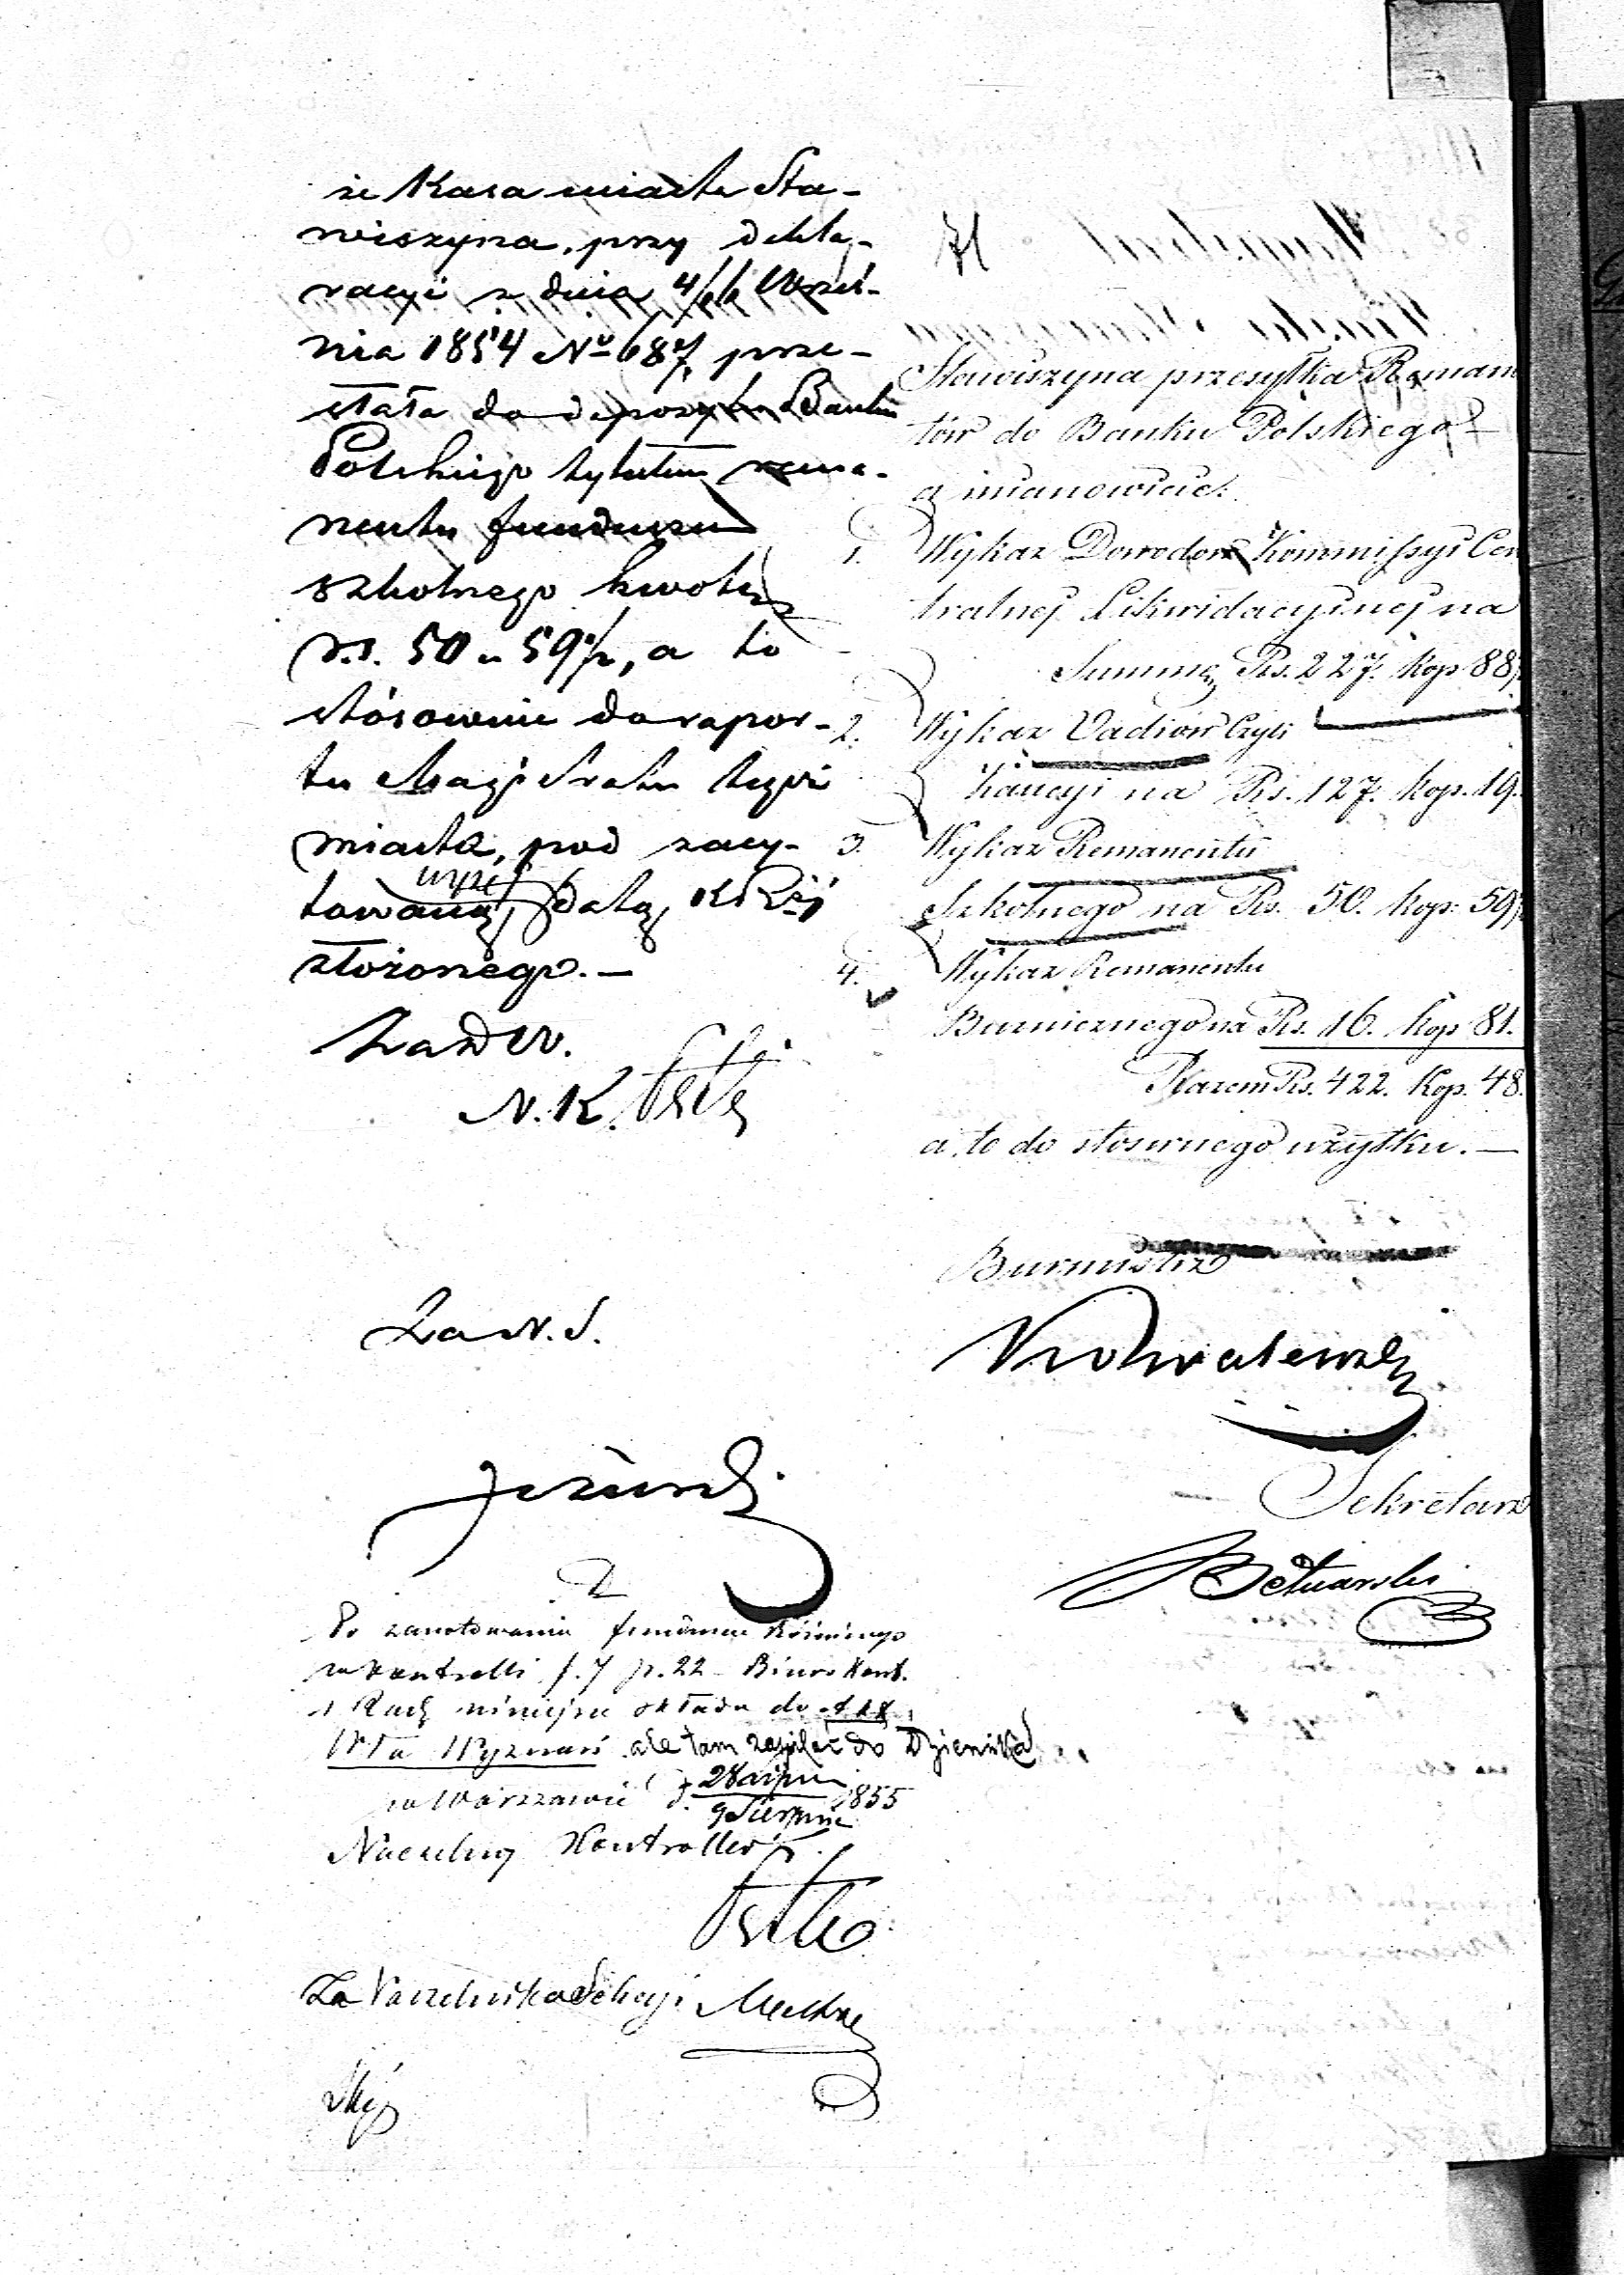 że Kassa miasta Sta-
wiszyna, przy dekla-
racyi z dnia 4/16 Wrześ-
nia 1854 No 687 prze-
słała do depozytu Banku
Polskiego tytułem rema-
nentu funduszu
szkolnego kwotę
r.s. 50 k 59½, a to
stósownie do rapor-
tu Magistratu tegoż
miasta, pod zacy-
towaną wyżej datą, KRżi
złożonego. —
Za DW.
N. K.
Za N. S.
Po zanotowaniu funduszu
w kontrolli f. 7 p. 22 Biuro Kont.
i Rach niniejsze składa do
Wła Wyznań ale tam do Dziennika
w Warszawie d. 28 Lipca / 9 Sierpnia 1855
Naczelny Kontroller
Za Naczelnika Sekcyi
Stawiszyna przesyłka Remanen
tów do Banku Polskiego
a mianowicie:
1. Wykaz Dowodów Kommissyi Cen
tralnej Likwidacyjnej na
Summę Rs. 227. kop 88½
2. Wykaz Vadiów czyli
kaucyi na Rs. 127. kop. 19.
3. Wykaz Remanentu
Szkolnego na Rs. 50. kop. 59½
4. Wykaz Remanentu
Bożnicznego na Rs. 16. kop 81.
Razem Rs. 422. Kop. 48.
a to do stosownego użytku. —
Burmistrz
Kowalewski
Sekretarz